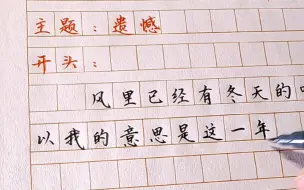 主题：遗憾
开头：
风里已经有冬天的
以我的意思是这一年